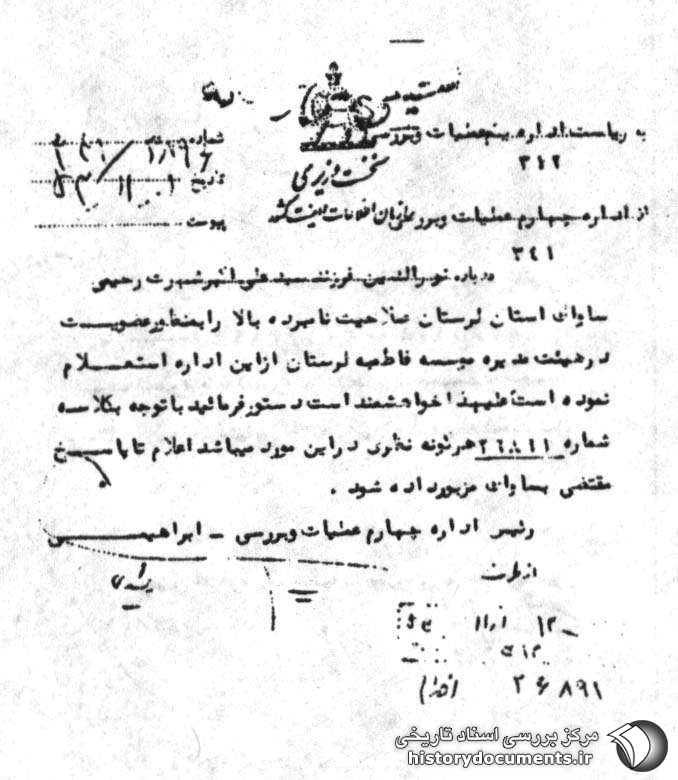 به ریاست اداره پنجم عملیات و بررسی
۳۱۲
شماره
تاریخ
پیوست
نخست وزیری
سازمان اطلاعات و امنیت کشور
از اداره چهارم عملیات و بررسی
۳۴۱
درباره نورالدین فرزند سید علی شهرت رحیمی
ساواک استان لرستان صلاحیت نامبرده بالا را بمنظور عضویت
در هیئت مدیره موسسه فاطمیه لرستان از این اداره استعلام
نموده است علیهذا خواهشمند است دستور فرمائید با توجه بکلاسه
شماره هرگونه نظری در این مورد میباشد اعلام تا پاسخ
مقتضی بساواک مزبور داده شود .
رئیس اداره چهارم عملیات و بررسی - ابراهیمی
از طرف
۲۶۸۹۱
مرکز بررسی اسناد تاریخی
historydocuments.ir